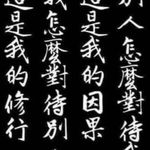 別人怎麼對待
是我的因果
我怎麼對待別
這是我的修行